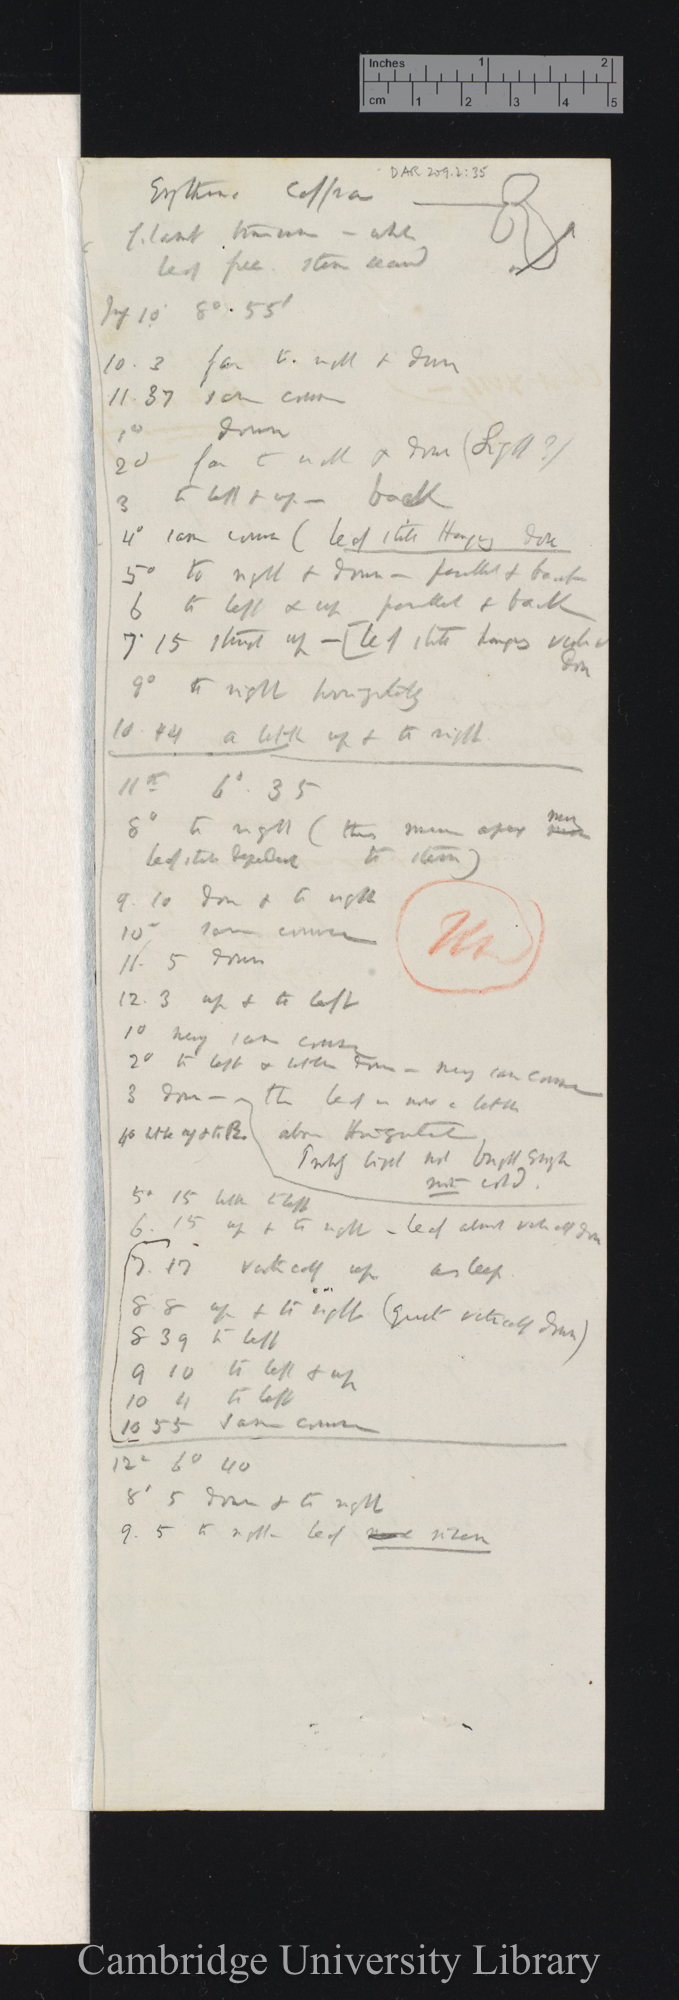 Inches 1 2
cm 1 2 3 4 5
DAR 209.2:35
Erythrina Caffra
filament — whole
leaf free. stem secured
July 10 8° 55'
10. 3 far to right & down
11. 37 same course
1° down
2° far to right & down (Light?)
3 to left & up — back
4° same course (leaf still Hanging down
5° to right & down — parallel & back
6 to left & up parallel & back
7. 15 straight up — [leaf still hanging vertical
down
9° to right horizontally
10. 44 a little up & to right
11th 6° 35
8° to right (this means apex
leaf still dependent to stem)
9. 10 down & to right
10° same course
11. 5 down
12. 3 up & to left
1° nearly same course
2° to left & little down — nearly same course
3 down — the leaf is now a little
4° little up & to R. above Horizontal
Probably light not bright enough
not cold.
5° 15 little to left
6. 15 up & to right — leaf almost vertically down
7. 17 vertically up asleep
8. 8 up & to right (quite vertically down)
8 39 to left
9 10 to left & up
10 4 to left
10 55 same course
12th 6° 40
8' 5 down & to right
9. 5 to right leaf risen
Cambridge University Library